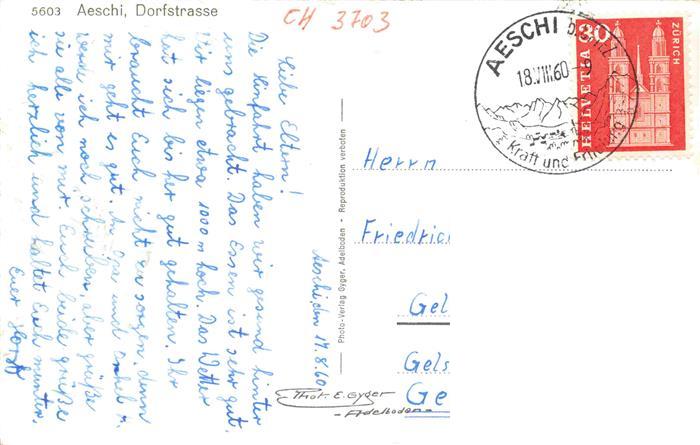 5603 Aeschi, Dorfstrasse
CH 3703
Liebe Eltern!
Die Hinfahrt haben wir gesund hinter
uns gebracht. Das Essen ist sehr gut.
Wir liegen etwa 1000 m hoch. Das Wetter
hat sich bis her gut gehalten. Ihr
braucht Euch nicht zu sorgen, denn
mir geht es gut. An Opa und Onkel
werde ich noch schreiben, aber grüße
sie alle von mir. Euch beide grüße
ich herzlich und haltet Euch munter.
Euer Horst
Aeschi, den 17.8.60
Photo-Verlag Gyger, Adelboden - Reproduktion verboten
Phot. E. Gyger
-Adelboden-
AESCHI b. SPIEZ
18.VIII.60-9
Kraft und
30
HELVETIA
ZÜRICH
Herrn
Friedric
Gel
Gels
Ge